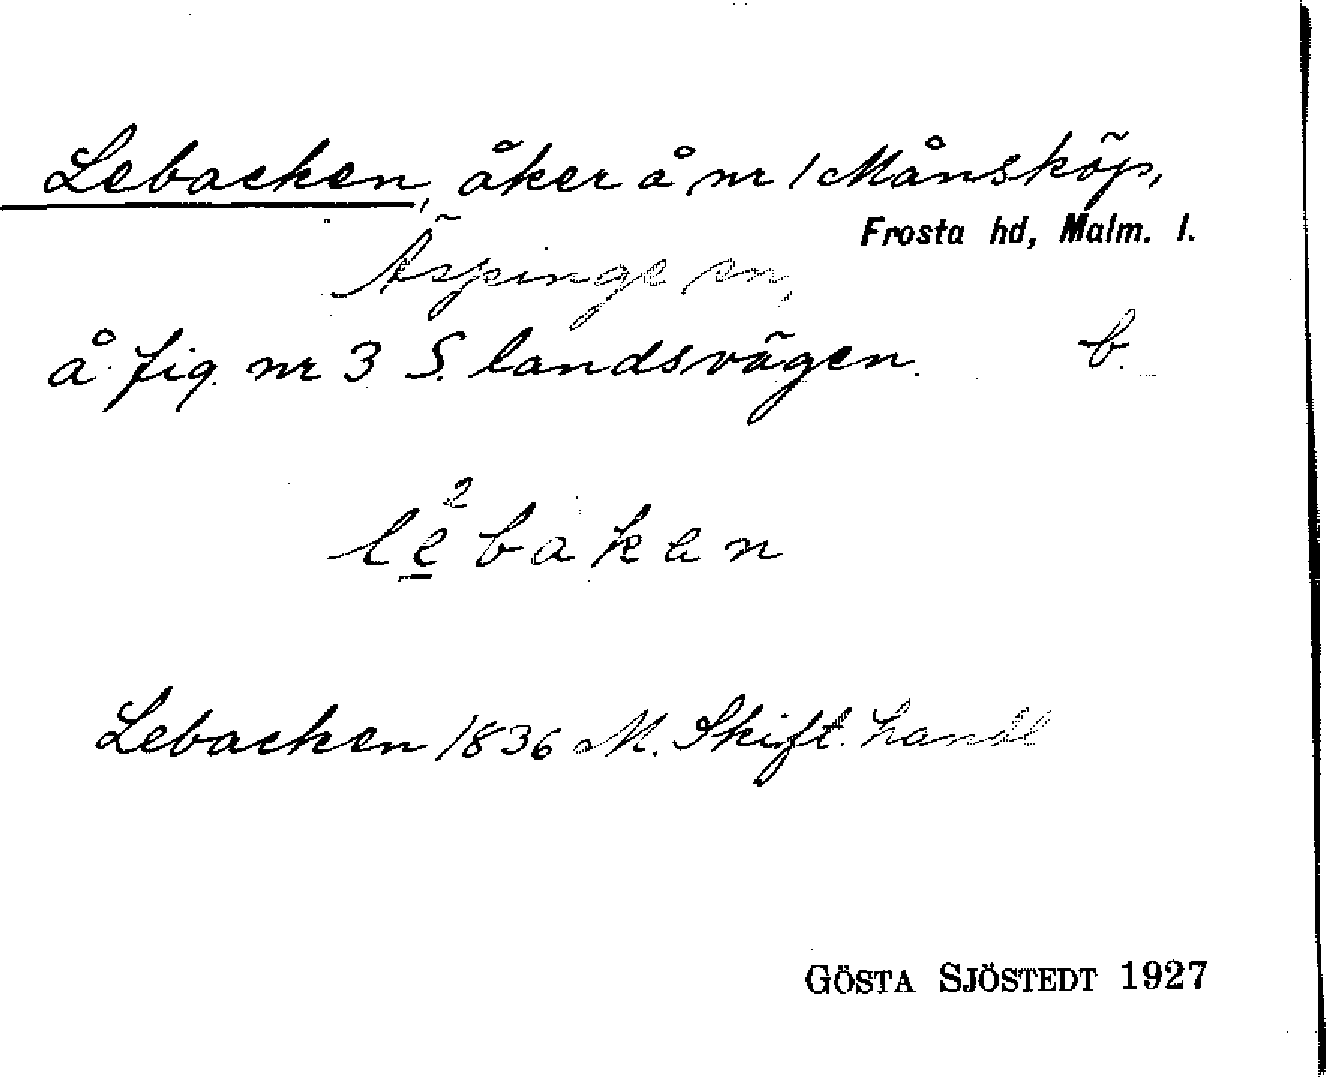 Lebacken, åker å nr 1 Månsköp,
Frosta hd, Malm. l.
Äspinge sn,
å fig. nr 3 S. landsvägen. b.
le̲²baken
Lebacken 1836 M. Skift. handl
GÖSTA SJÖSTEDT 1927